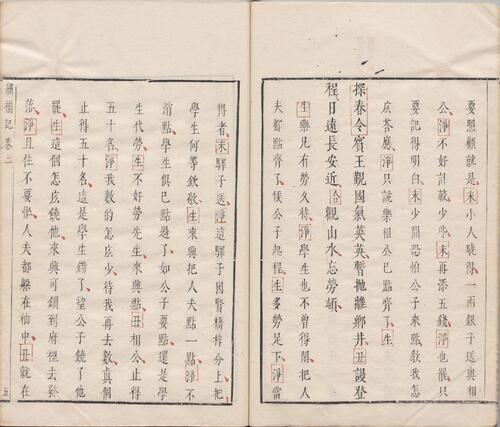 要照顧就是末小人曉得一兩銀子送與相
公淨不好討載少些末再添五錢淨也罷只
要記得明白末少間恐怕公子來點教我怎
庅答應淨只説樂相公巳點齊了生
探春令賓王觀國氣英英暫抛離鄉井丑謾登
程日遠長安近合觀山水忘勞頓
生樂兄有勞久待淨學生也不曾得閒把人
夫都點齊了候公子起程生多勞足下淨當
得者末驛子送淨這驛子因賢橋梓分上把
學生何等欽敬生來興把人夫點一點淨不
消點學生俱巳點過了如公子要點還是學
生代勞生不好勞先生來興點丑相公止得
五十名淨我數的怎庅少待我再去數真個
止得五十名這是學生錯了望公子饒了他
罷生這個怎庅饒他來興可鎖到府裡去發
落淨且住不要恠人夫都躱在柚中丑就在
繡襦記 卷二
五